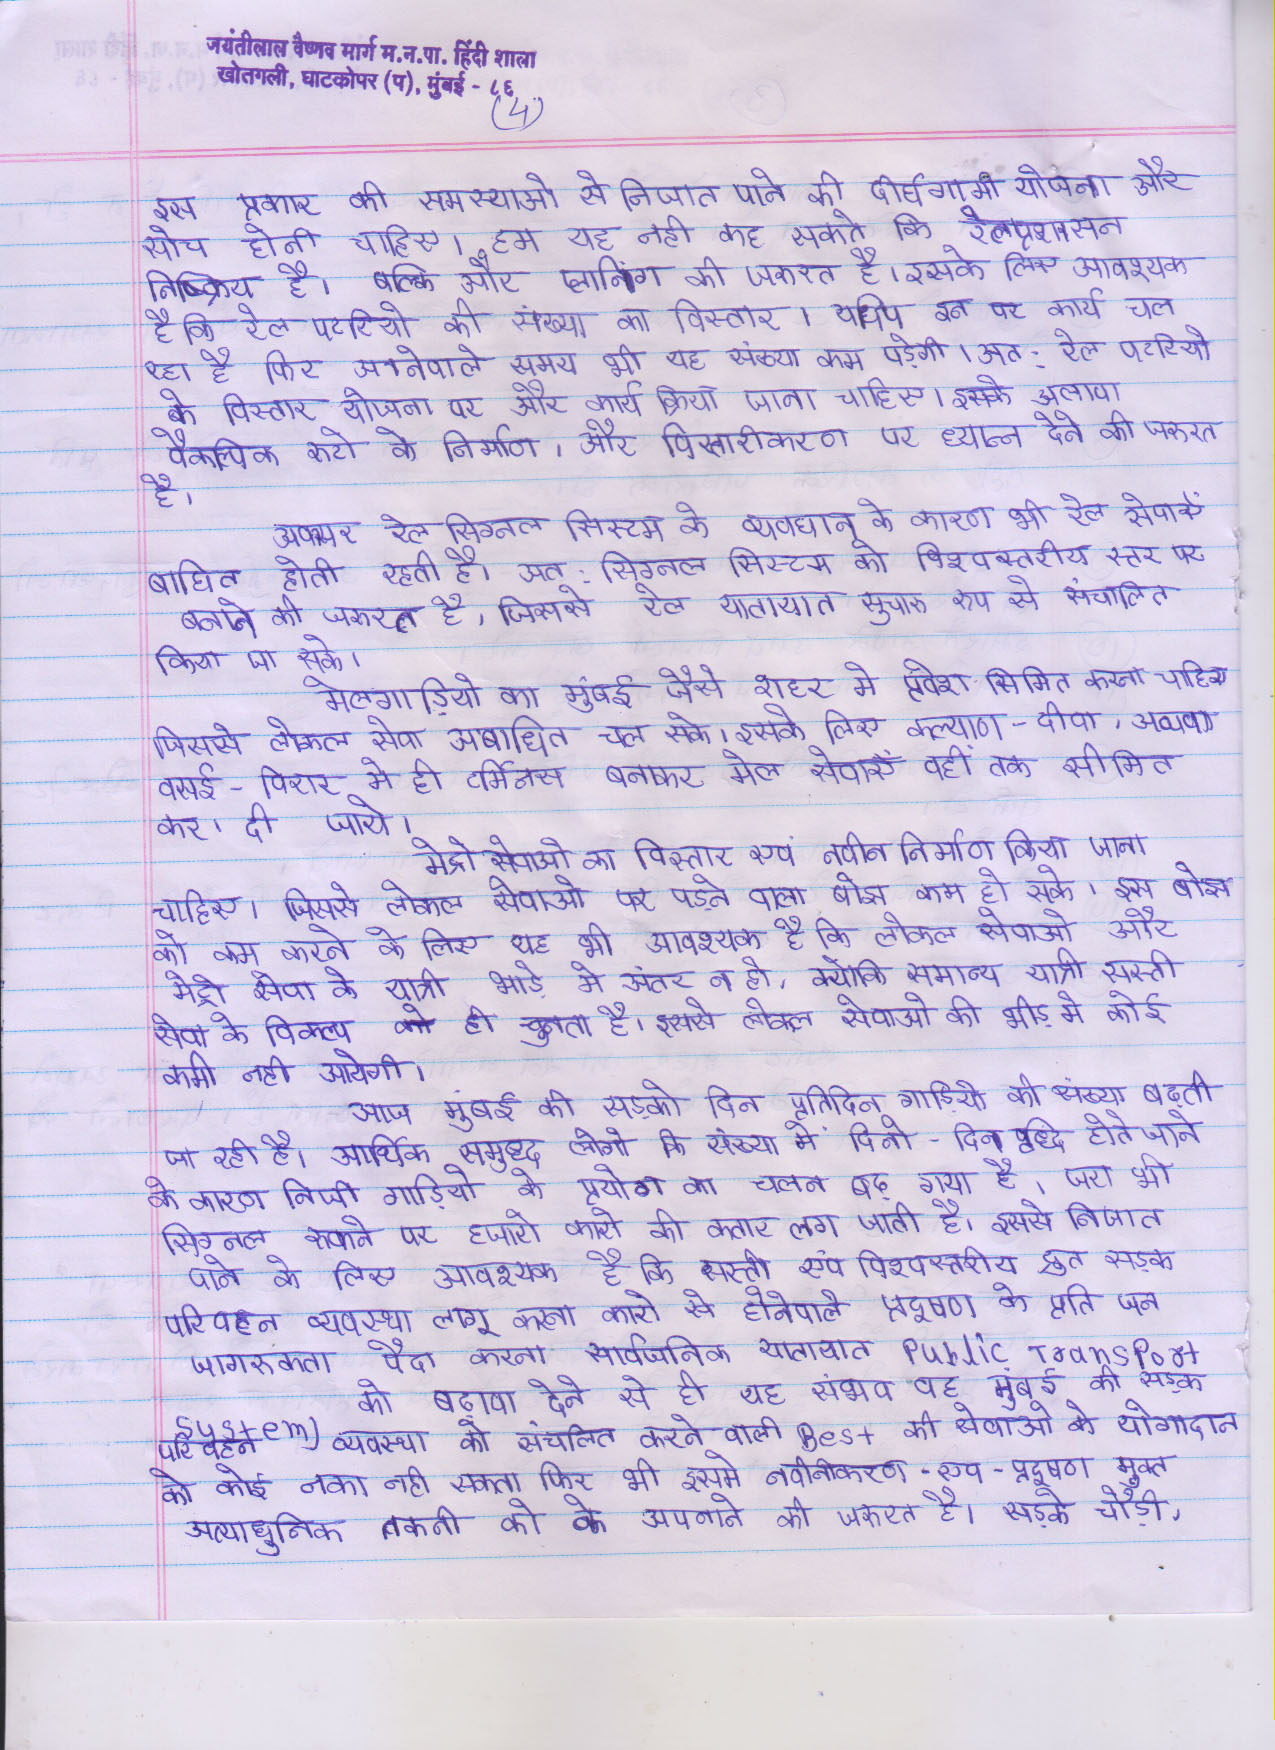 जयंतीलाल वैष्णव मार्ग म.न.पा. हिंदी शाला
खोतगली, घाटकोपर (प), मुंबई - ८६
(4)
इस प्रकार की समस्याओ से निजात पाने की दीर्घगामी योजना और
सोच होनी चाहिए। हम यह नही कह सकते कि रेलप्रशासन
निष्क्रिय है। बल्कि और प्लानिंग की जरूरत है। इसके लिए आवश्यक
है कि रेल पटरियो की संख्या का विस्तार। यद्यपि इन पर कार्य चल
रहा है फिर आनेवाले समय भी यह संख्या कम पड़ेगी। अत: रेल पटरियो
के विस्तार योजना पर और कार्य किया जाना चाहिए। इसके अलावा
वैकल्पिक रूटो के निर्माण, और विस्तारीकरण पर ध्यान्न देने की जरूरत
है।
अक्सर रेल सिग्नल सिस्टम के व्यवधान के कारण भी रेल सेवाएँ
बाधित होती रहती है। अत: सिग्नल सिस्टम को विश्वस्तरीय स्तर पर
बनाने की जरूरत है, जिससे रेल यातायात सुचारू रूप से संचालित
किया जा सके।
मेलगाड़ियो का मुंबई जैसे शहर मे प्रवेश सिमित करना चाहिए
जिससे लोकल सेवा अबाधित चल सके। इसके लिए कल्याण - दीवा, अथवा
वसई - विरार मे ही टर्मिनस बनाकर मेल सेवाएँ वहीं तक सीमित
कर। दी जाये।
मेट्रो सेवाओ का विस्तार एवं नवीन निर्माण किया जाना
चाहिए। जिससे लोकल सेवाओ पर पड़ने वाला बोझ कम हो सके। इस बोझ
को कम करने के लिए यह भी आवश्यक है कि लोकल सेवाओ और
मेट्रो सेवा के यात्री भाड़े मे अंतर न हो, क्योकि समान्य यात्री सस्ती
सेवा के विकल्प को ही चुनता है। इससे लोकल सेवाओ की भीड़ मे कोई
कमी नही आयेगी।
आज मुंबई की सड़को दिन प्रतिदिन गाड़ियो की संख्या बढ़ती
जा रही है। आर्थिक समृध्द लोगो कि संख्या मे दिनो - दिन वृध्दि होते जाने
के कारण निजी गाड़ियो के प्रयोग का चलन बढ़ गया है, जरा भी
सिग्नल रूकने पर हजारो कारो की कतार लग जाती है। इससे निजात
पाने के लिए आवश्यक है कि सस्ती एंव विश्वस्तरीय द्रुत सड़क
परिवहन व्यवस्था लागू करना कारो से होनेवाले प्रदूषण के प्रति जन
जागरूकता पैदा करना सार्वजनिक यातायात Public TransPort
को बढ़ावा देने से ही यह संभव वह मुंबई की सड़क
System)
परिवहन व्यवस्था को संचलित करने वाली Best की सेवाओ के योगादान
को कोई नका नही सकता फिर भी इसमे नवीनीकरण - एंव - प्रदूषण मुक्त
अत्याधुनिक तकनी को के अपनाने की जरूरत है। सड़के चौड़ी,